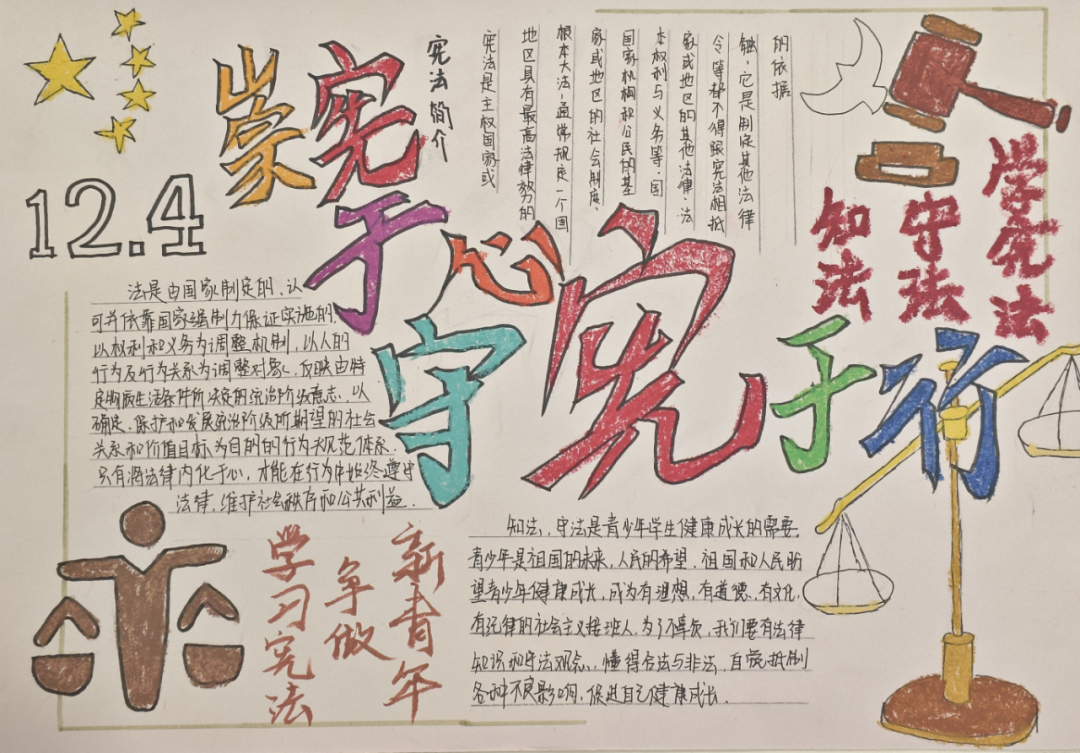 12.4
崇宪于心
守宪于行
宪法简介
宪法是主权国家或
地区具有最高法律效力的
根本大法,通常规定一个国
家或地区的社会制度、
国家机构和公民的基
本权利与义务等。国
家或地区的其他法律、法
令等都不得跟宪法相抵
触,它是制定其他法律
的依据
学宪法
守法
知法
法是由国家制定的、认
可并依靠国家强制力保证实施的,
以权利和义务为调整机制,以人的
行为及行为关系为调整对象,反映由特
定物质生活条件所决定的统治阶级意志,以
确定、保护和发展统治阶级所期望的社会
关系和价值目标为目的的行为规范体系.
只有将法律内化于心,才能在行为中始终遵守
法律,维护社会秩序和公共利益.
学习宪法
争做
新青年
知法、守法是青少年学生健康成长的需要.
青少年是祖国的未来,人民的希望.祖国和人民盼
望青少年健康成长,成为有理想,有道德,有文化,
有纪律的社会主义接班人.为了不辜负,我们要有法律
知识和守法观念,懂得合法与非法,自觉抵制
各种不良影响,促进自己健康成长.